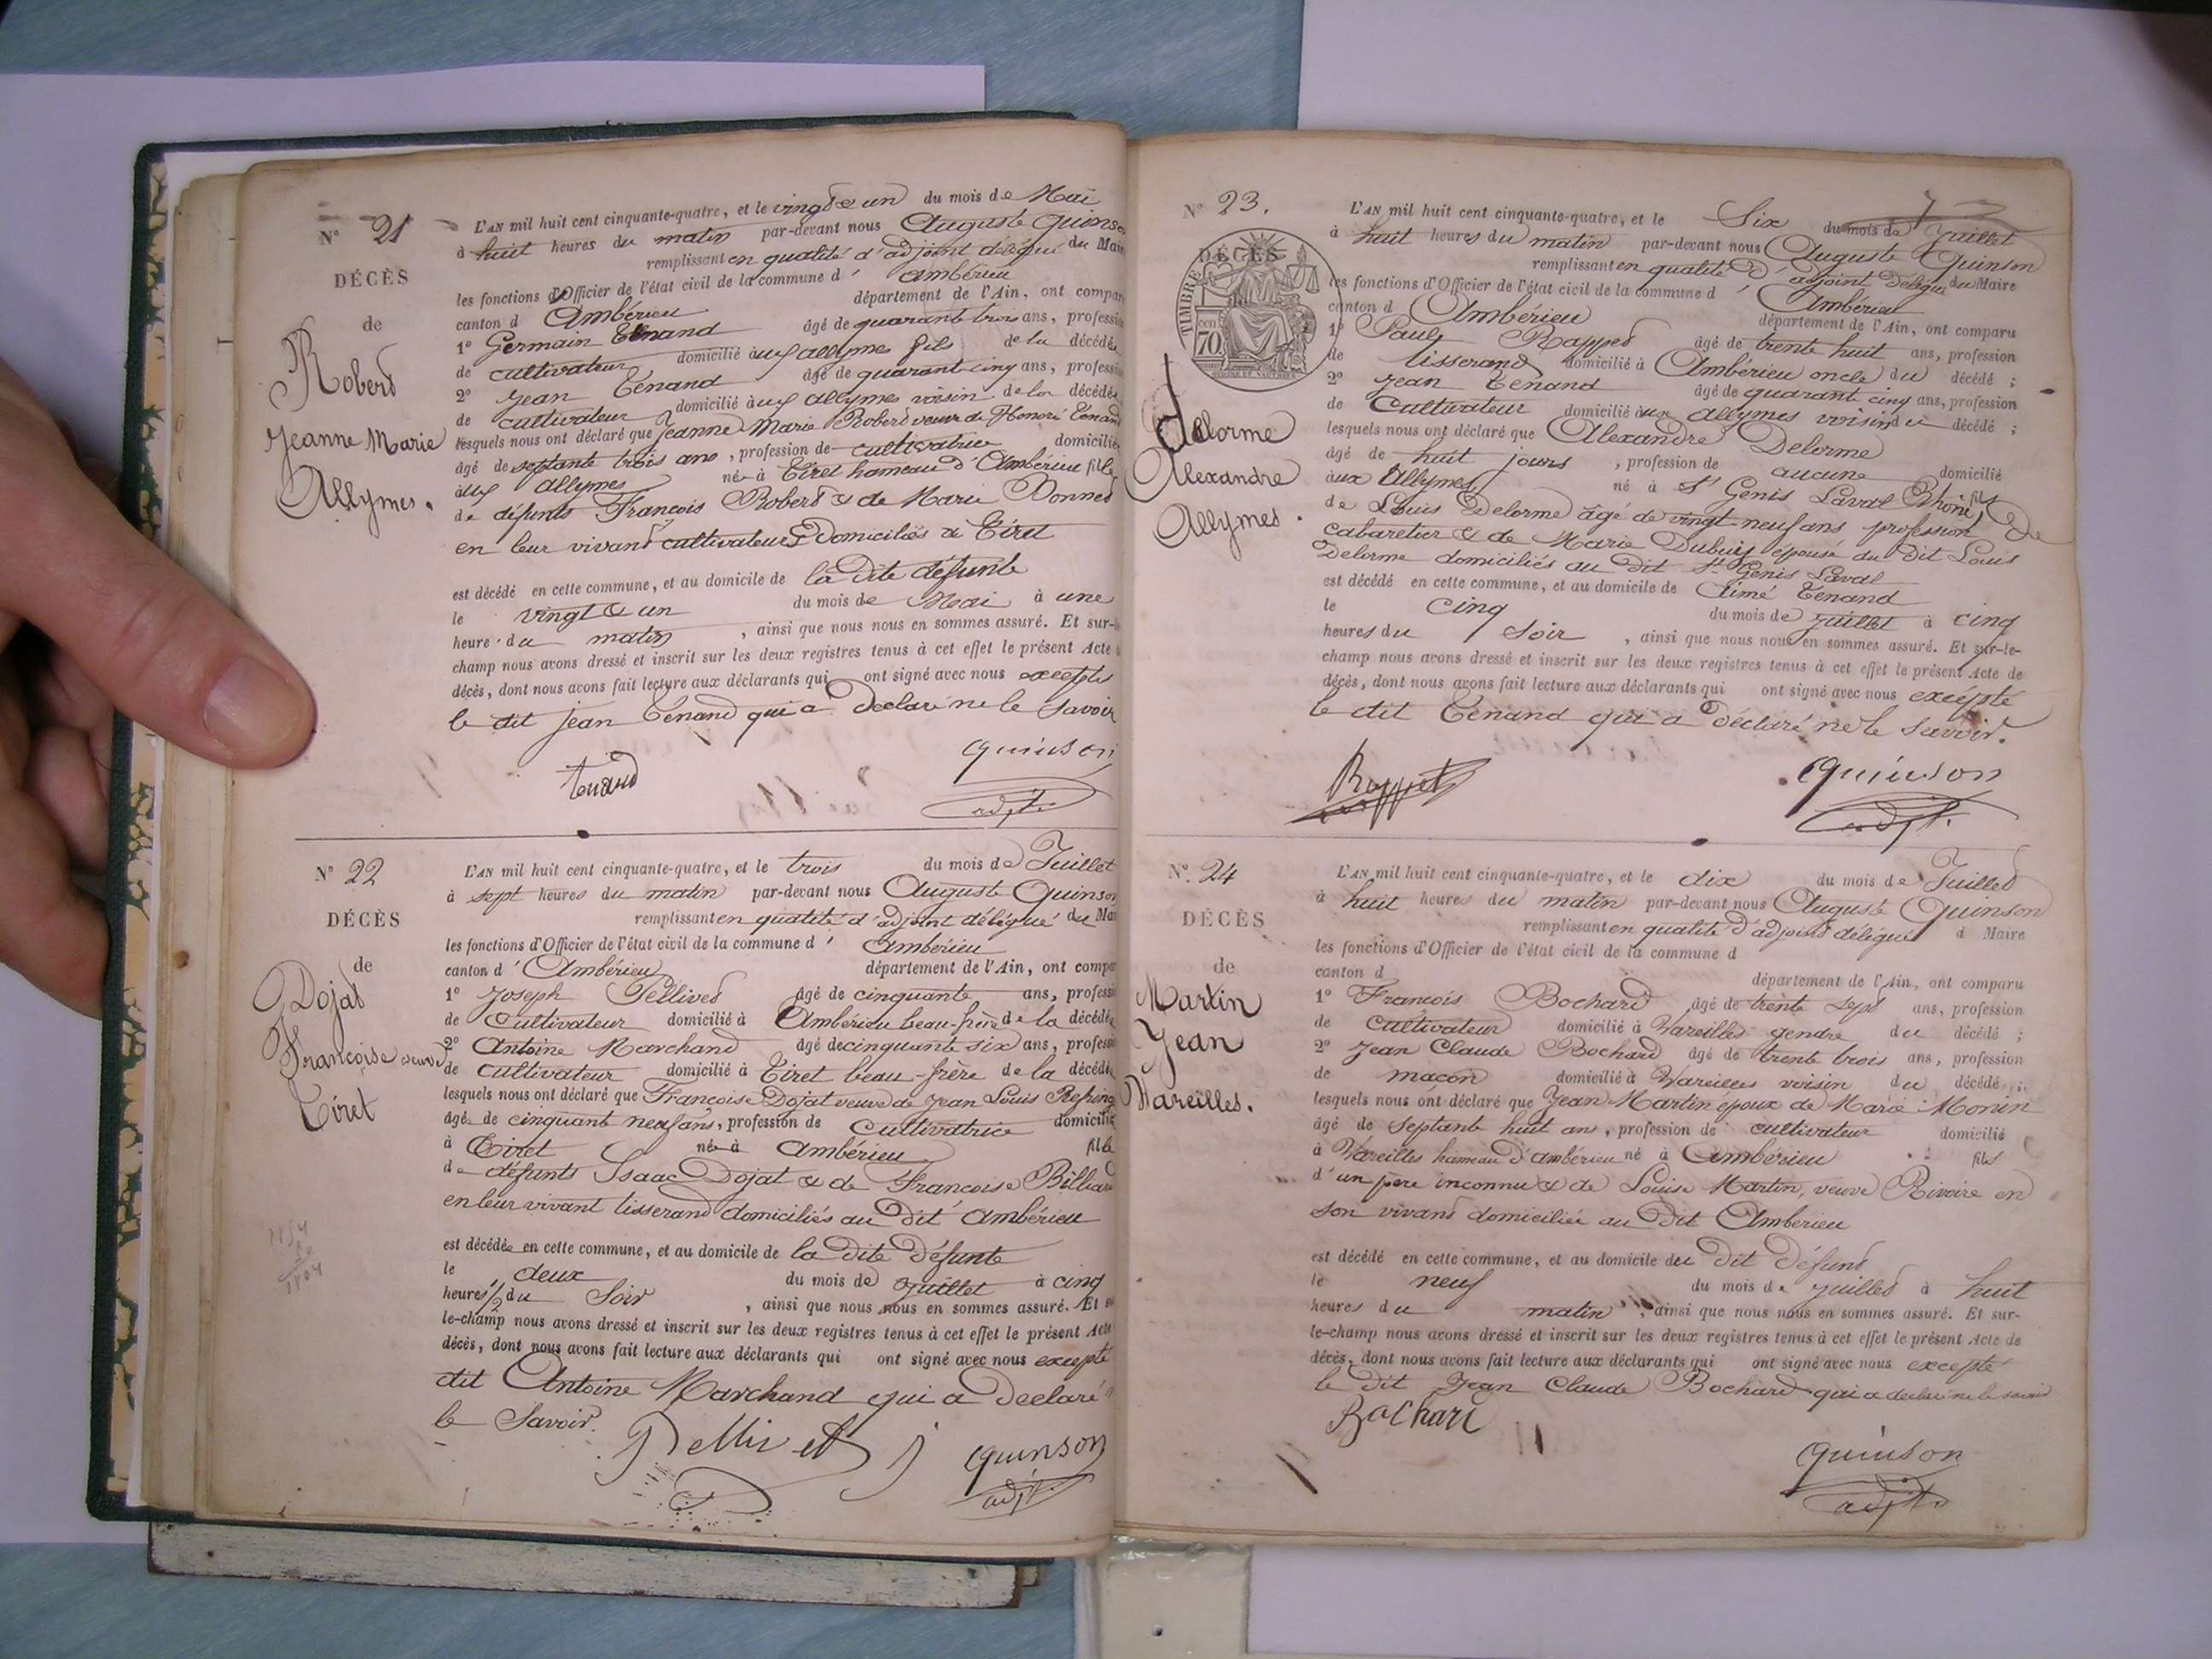 N° 21
DÉCÈS
de
Robert
Jeanne Marie
Allymes.
L'AN mil huit cent cinquante-quatre, et le vingt & un du mois de Mai
à huit heures du matin par-devant nous Auguste Quinson
remplissant en qualité d'adjoint délégué du Maire
les fonctions d'Officier de l'état civil de la commune d' Ambérieu
canton d Ambérieu département de l'Ain, ont compar
1° Germain Tenand âgé de quarante trois ans, professi
de cultivateur domicilié aux allymes fils de la décédée
2° Jean Tenand âgé de quarante cinq ans, professi
de cultivateur domicilié aux allymes voisin de la décédée
lesquels nous ont déclaré que Jeanne Marie Robert veuve de Honoré Tenand
âgé de septante trois ans, profession de cultivatrice domiciliée
aux allymes née à Tiret hameau d'Ambérieu fille
de défunts François Robert & de Marie Bonnet
en leur vivant cultivateurs Domiciliés à Tiret
est décédé en cette commune, et au domicile de la dite défunte
le vingt & un du mois de Mai à une
heure du matin, ainsi que nous nous en sommes assuré. Et sur-l
champ nous avons dressé et inscrit sur les deux registres tenus à cet effet le présent Acte
décès, dont nous avons fait lecture aux déclarants qui ont signé avec nous excepté
le dit jean Tenand qui a Déclaré ne le Savoir
tenand quinson
adjt.
N° 22
DÉCÈS
de
Dojat
Françoise veuve
Tiret
L'AN mil huit cent cinquante-quatre, et le trois du mois de Juillet
à sept heures du matin par-devant nous Auguste Quinson
remplissant en qualité d'adjoint délégué du Mai
les fonctions d'Officier de l'état civil de la commune d' Ambérieu
canton d' Ambérieu département de l'Ain, ont compa
1° Joseph Pellivet âgé de cinquante ans, professi
de Cultivateur domicilié à Ambérieu beau-frère de la décédée
2° Antoine Marchand âgé de cinquante six ans, professi
de cultivateur domicilié à Tiret beau-frère de la décédée
lesquels nous ont déclaré que Françoise Dojat veuve de Jean Louis
âgée de cinquant neuf ans, profession de Cultivatrice domiciliée
à Tiret née à Ambérieu fille
de défunts Isaac Dojat & de Françoise Billiard
en leur vivant tisserand domiciliés au dit Ambérieu
est décédée en cette commune, et au domicile de la dite Défunte
le deux du mois de Juillet à cinq
heures 1/2 du Soir, ainsi que nous nous en sommes assuré. Et su
le-champ nous avons dressé et inscrit sur les deux registres tenus à cet effet le présent Acte
décès, dont nous avons fait lecture aux déclarants qui ont signé avec nous excepté
dit Antoine Marchand qui a Déclaré
le Savoir.
quinson
adjt.
N° 23.
DÉCÈS
TIMBRE
70
de
Delorme
Alexandre
Allymes.
L'AN mil huit cent cinquante-quatre, et le Six du mois de Juillet
à huit heures du matin par-devant nous Auguste Quinson
remplissant en qualité d'adjoint Délégué du Maire
les fonctions d'Officier de l'état civil de la commune d' Ambérieu
canton d' Ambérieu département de l'Ain, ont comparu
1° Paul Rappet âgé de trente huit ans, profession
de tisserand domicilié à Ambérieu oncle du décédé ;
2° Jean Tenand âgé de quarante cinq ans, profession
de Cultivateur domicilié aux allymes voisin du décédé ;
lesquels nous ont déclaré que Alexandre Delorme
âgé de huit jours, profession de aucune domicilié
aux Allymes né à St Genis Laval (Rhône) fils
de Louis Delorme âgé de vingt-neuf ans profession de
Cabaretier & de Marie Dubuis épouse du dit Louis
Delorme domiciliés au dit St Genis Laval
est décédé en cette commune, et au domicile de Aimé Tenand
le cinq du mois de juillet à cinq
heures du soir, ainsi que nous nous en sommes assuré. Et sur-le-
champ nous avons dressé et inscrit sur les deux registres tenus à cet effet le présent Acte de
décès, dont nous avons fait lecture aux déclarants qui ont signé avec nous excépté
le dit Tenand qui a Déclaré ne le savoir.
Rappet quinson
adjt.
N° 24
DÉCÈS
de
Martin
Jean
Vareilles.
L'AN mil huit cent cinquante-quatre, et le dix du mois de Juillet
à huit heures du matin par-devant nous Auguste Quinson
remplissant en qualité d'adjoint délégué d Maire
les fonctions d'Officier de l'état civil de la commune d
canton d département de l'Ain, ont comparu
1° François Bochard âgé de trente sept ans, profession
de Cultivateur domicilié à Vareilles gendre du décédé ;
2° Jean Claude Bochard âgé de trente trois ans, profession
de maçon domicilié à Vareilles voisin du décédé ;
lesquels nous ont déclaré que Jean Martin époux de Marie Monin
âgé de Septante huit ans, profession de cultivateur domicilié
à Vareilles hameau d'ambérieu né à Ambérieu fils
d'un père inconnu & de Louise Martin, veuve Rivoire en
son vivant domiciliée au dit Ambérieu
est décédé en cette commune, et au domicile du dit Défunt
le neuf du mois de juillet à huit
heures du matin, ainsi que nous nous en sommes assuré. Et sur-
le-champ nous avons dressé et inscrit sur les deux registres tenus à cet effet le présent Acte de
décès, dont nous avons fait lecture aux déclarants qui ont signé avec nous excepté
le dit Jean Claude Bochard qui a déclaré ne le savoir
Bochard
quinson
adjt.